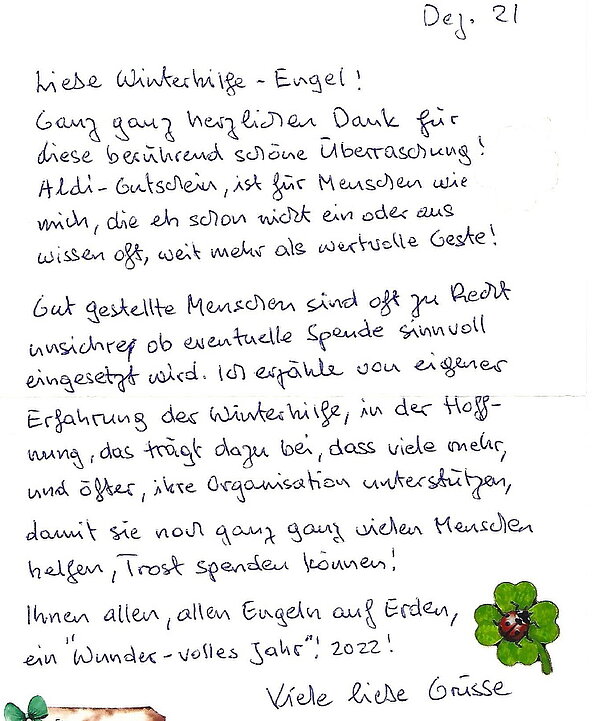 Dez. 21
Liebe Winterhilfe - Engel!
Ganz ganz herzlichen Dank für
diese berührend schöne Überraschung!
Aldi-Gutschein, ist für Menschen wie
mich, die eh schon nicht ein oder aus
wissen oft, weit mehr als wertvolle Geste!
Gut gestellte Menschen sind oft zu Recht
unsicher, ob eventuelle Spende sinnvoll
eingesetzt wird. Ich erzähle von eigener
Erfahrung der Winterhilfe, in der Hoff-
nung, das trägt dazu bei, dass viele mehr,
und öfter, ihre Organisation unterstützen,
damit sie noch ganz ganz vielen Menschen
helfen, Trost spenden können!
Ihnen allen, allen Engeln auf Erden,
ein "Wunder-volles Jahr"! 2022!
Viele liebe Grüsse